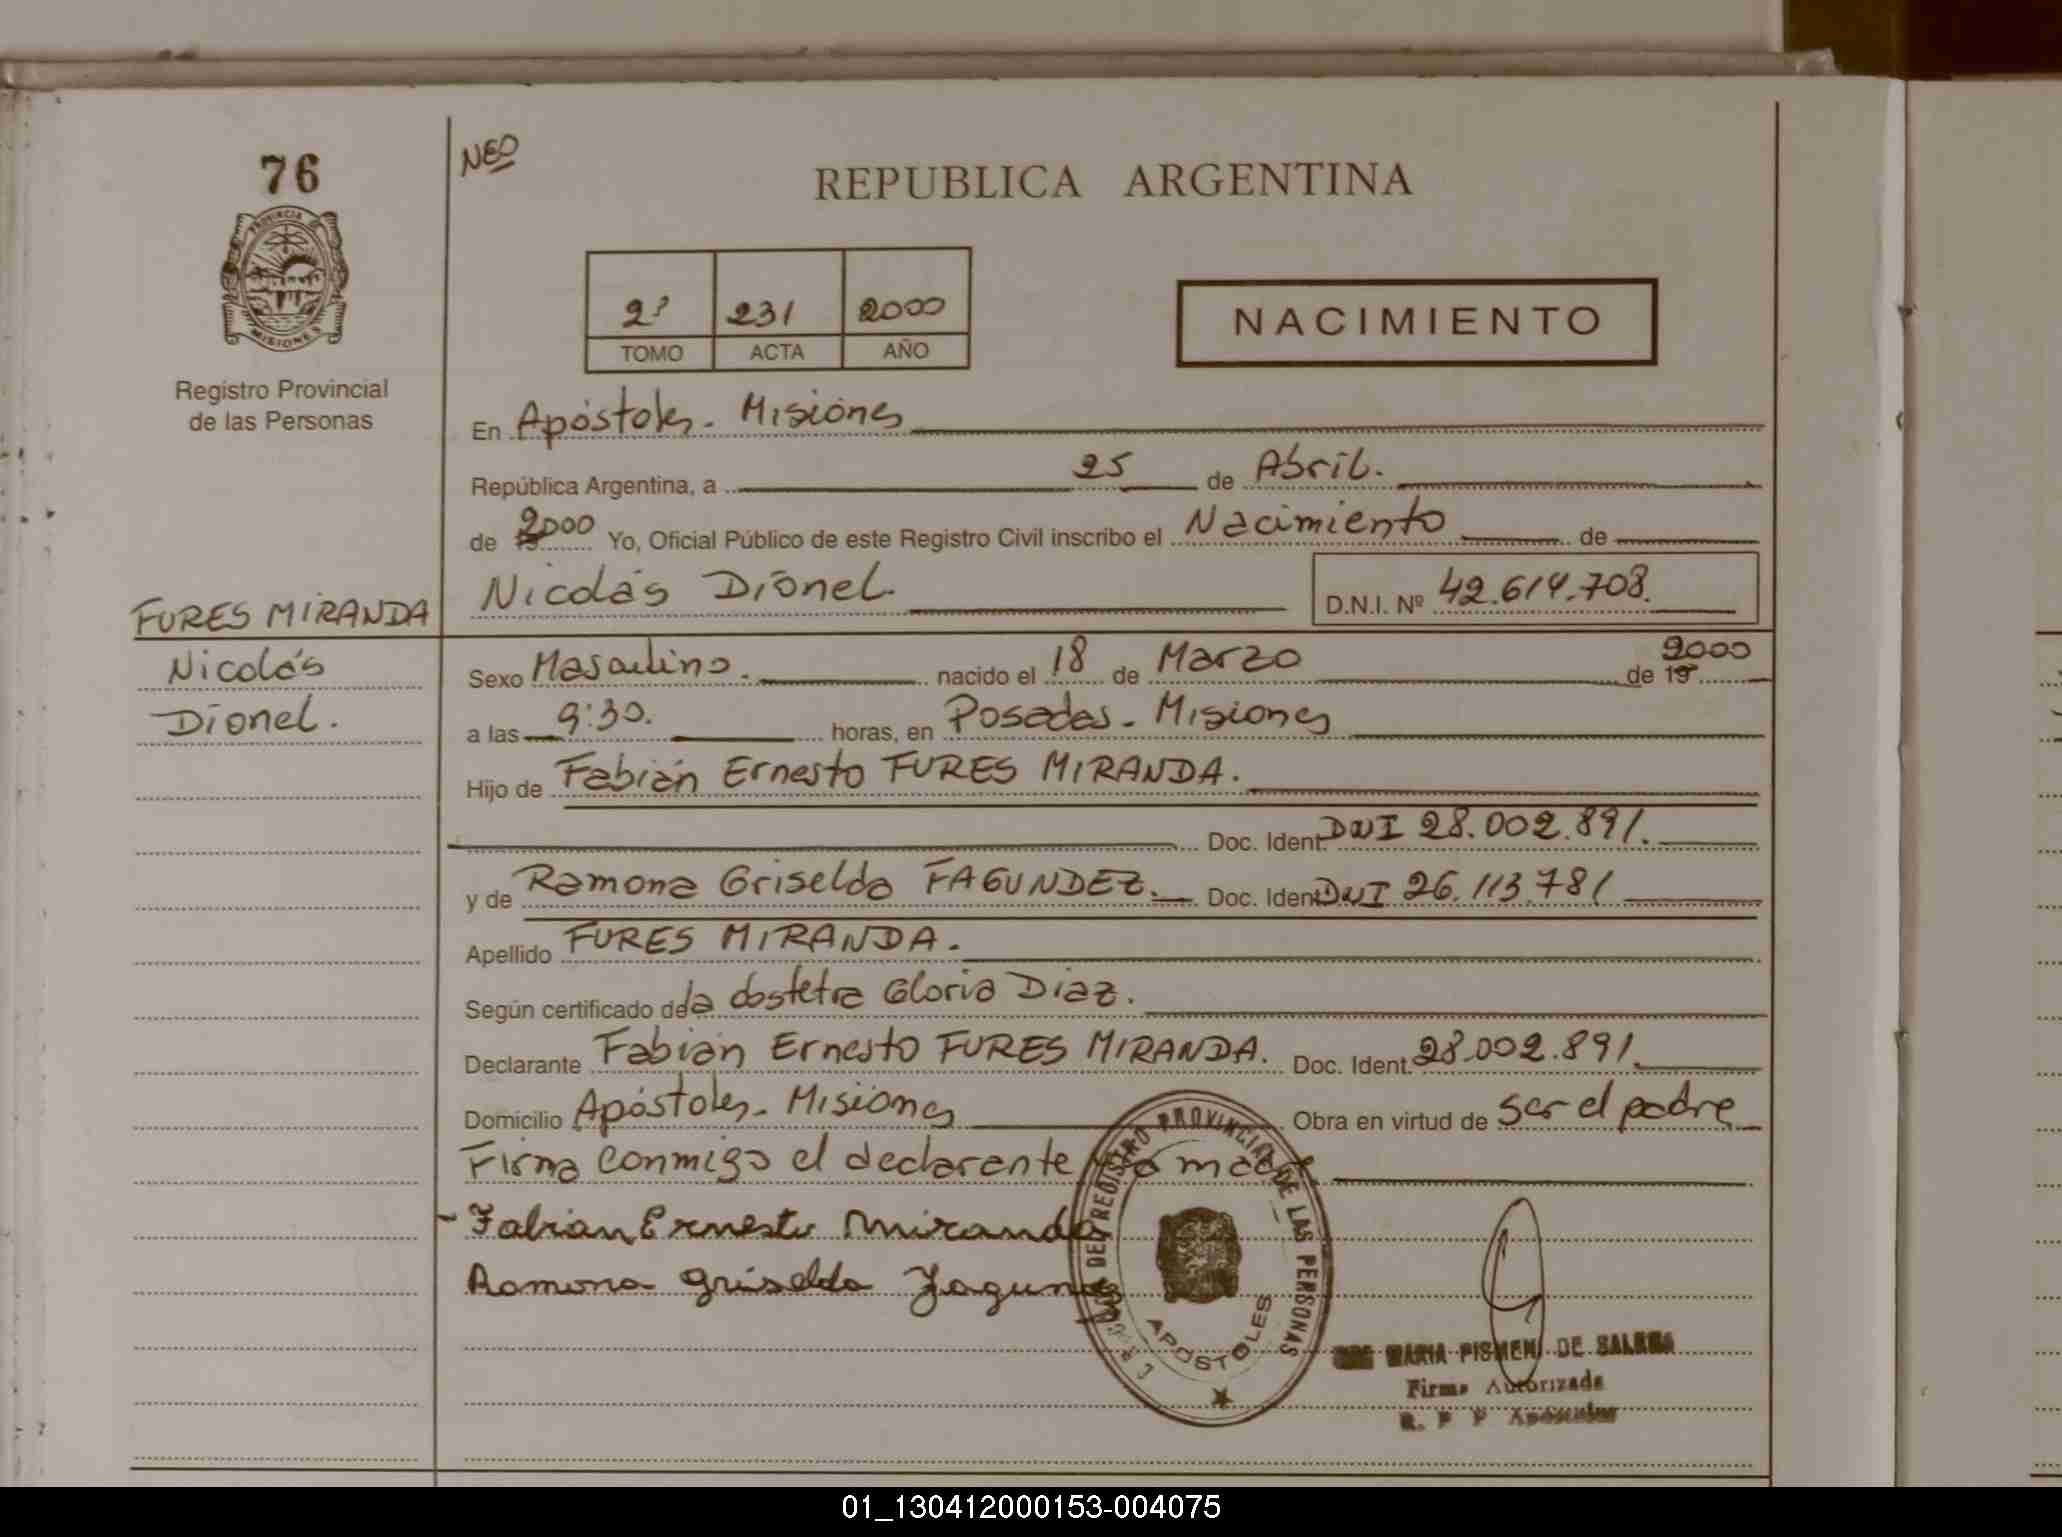 76
NEO
REPUBLICA ARGENTINA
PROVINCIA
MISIONES
Registro Provincial
de las Personas
2º 231 2000
TOMO ACTA AÑO
NACIMIENTO
En Apóstoles - Misiones
República Argentina, a 25 de Abril.
de 2000 Yo, Oficial Público de este Registro Civil inscribo el Nacimiento de
Nicolás Dionel. D.N.I. Nº 42.614.708.
FURES MIRANDA
Nicolás
Dionel.
Sexo Masculino. nacido el 18 de Marzo de 19 2000
a las 9:30. horas, en Posadas - Misiones
Hijo de Fabián Ernesto FURES MIRANDA.
Doc. Ident. DNI 28.002.891.
y de Ramona Griselda FAGUNDEZ. Doc. Ident. DNI 26.113.781
Apellido FURES MIRANDA.
Según certificado de la obstetra Gloria Diaz.
Declarante Fabián Ernesto FURES MIRANDA. Doc. Ident. 28.002.891.
Domicilio Apóstoles - Misiones Obra en virtud de ser el padre
Firma conmigo el declarante y la madre.
Fabian Ernesto Miranda
Ramona Griselda
REGISTRO PROVINCIAL DE LAS PERSONAS
APOSTOLES
MARIA PISMEN DE
Firma Autorizada
R. P. P. Apóstoles
01_130412000153-004075